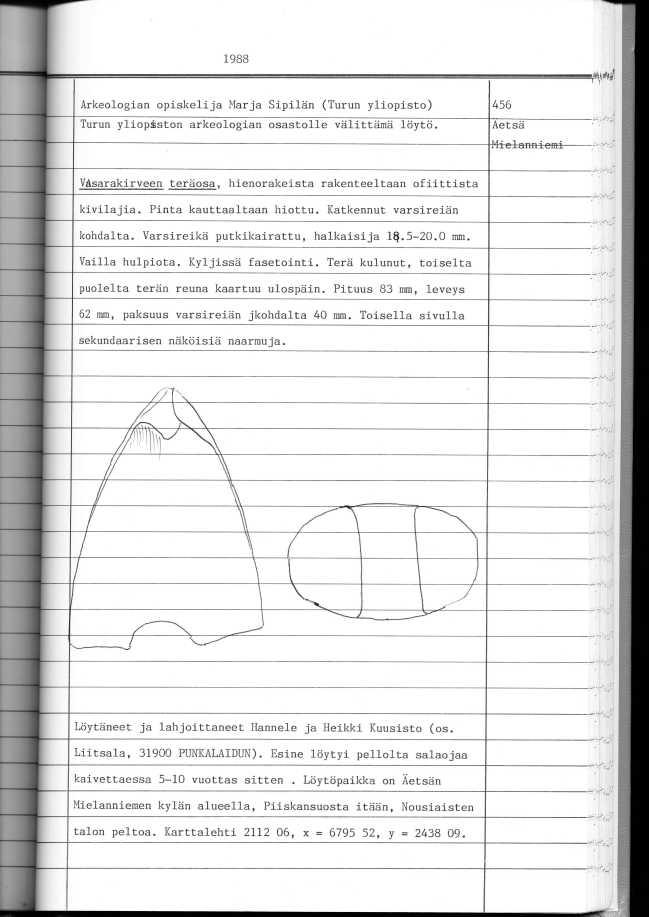 1988
Arkeologian opiskelija Marja Sipilän (Turun yliopisto)
456
Turun yliopiston arkeologian osastolle välittämä löytö.
Äetsä
Mielanniemi
Vasarakirveen teräosa, hienorakeista rakenteeltaan ofiittista
kivilajia. Pinta kauttaaltaan hiottu. Katkennut varsireiän
kohdalta. Varsireikä putkikairattu, halkaisija 18.5-20.0 mm.
Vailla hulpiota. Kyljissä fasetointi. Terä kulunut, toiselta
puolelta terän reuna kaartuu ulospäin. Pituus 83 mm, leveys
62 mm, paksuus varsireiän jkohdalta 40 mm. Toisella sivulla
sekundaarisen näköisiä naarmuja.
Löytäneet ja lahjoittaneet Hannele ja Heikki Kuusisto (os.
Liitsala, 31900 PUNKALAIDUN). Esine löytyi pellolta salaojaa
kaivettaessa 5-10 vuottas sitten . Löytöpaikka on Äetsän
Mielanniemen kylän alueella, Piiskansuosta itään, Nousiaisten
talon peltoa. Karttalehti 2112 06, x = 6795 52, y = 2438 09.